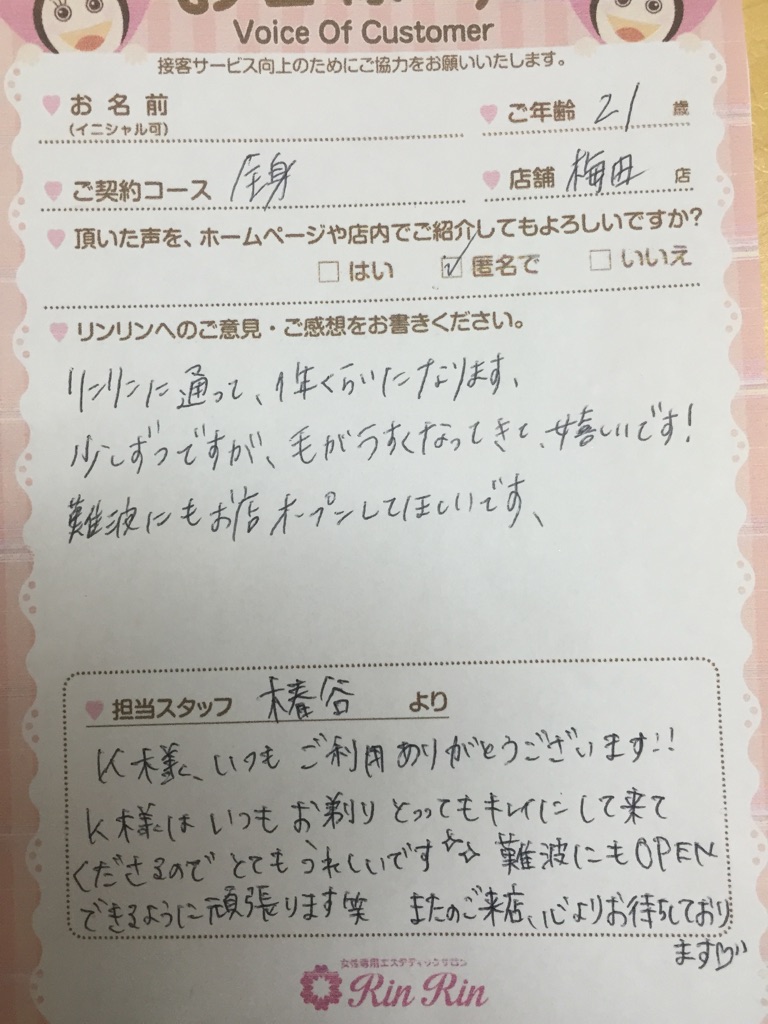 Voice Of Customer
接客サービス向上のためにご協力をお願いいたします。
お名前
(イニシャル可)
ご年齢 21 歳
ご契約コース 全身
店舗 梅田 店
頂いた声を、ホームページや店内でご紹介してもよろしいですか?
□ はい ☑ 匿名で □ いいえ
リンリンへのご意見・ご感想をお書きください。
リンリンに通って、1年くらいになります、
少しずつですが、毛がうすくなってきて、嬉しいです!
難波にもお店オープンしてほしいです、
担当スタッフ 椿谷 より
K様、いつもご利用ありがとうございます!!
K様はいつもお剃りとってもキレイにして来て
くださるのでとてもうれしいです☆☆ 難波にもOPEN
できるように頑張ります笑 またのご来店、心よりお待ちしており
ます♡
女性専用エステティックサロン
Rin Rin